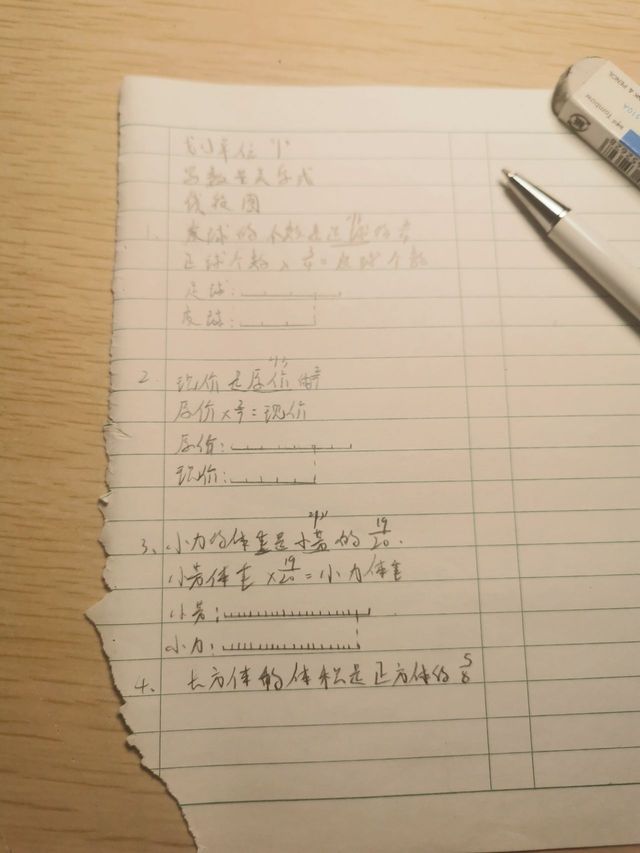 划单位"1"
写数量关系式
线段图
1、皮球的个数是足球的
足球个数×=皮球个数
足球:
皮球:
2、现价是原价的
原价×=现价
原价:
现价:
3、小力的体重是小芳的19/20.
小芳体重×19/20=小力体重
小芳:
小力:
4、长方体的体积是正方体的5/8
Tombow